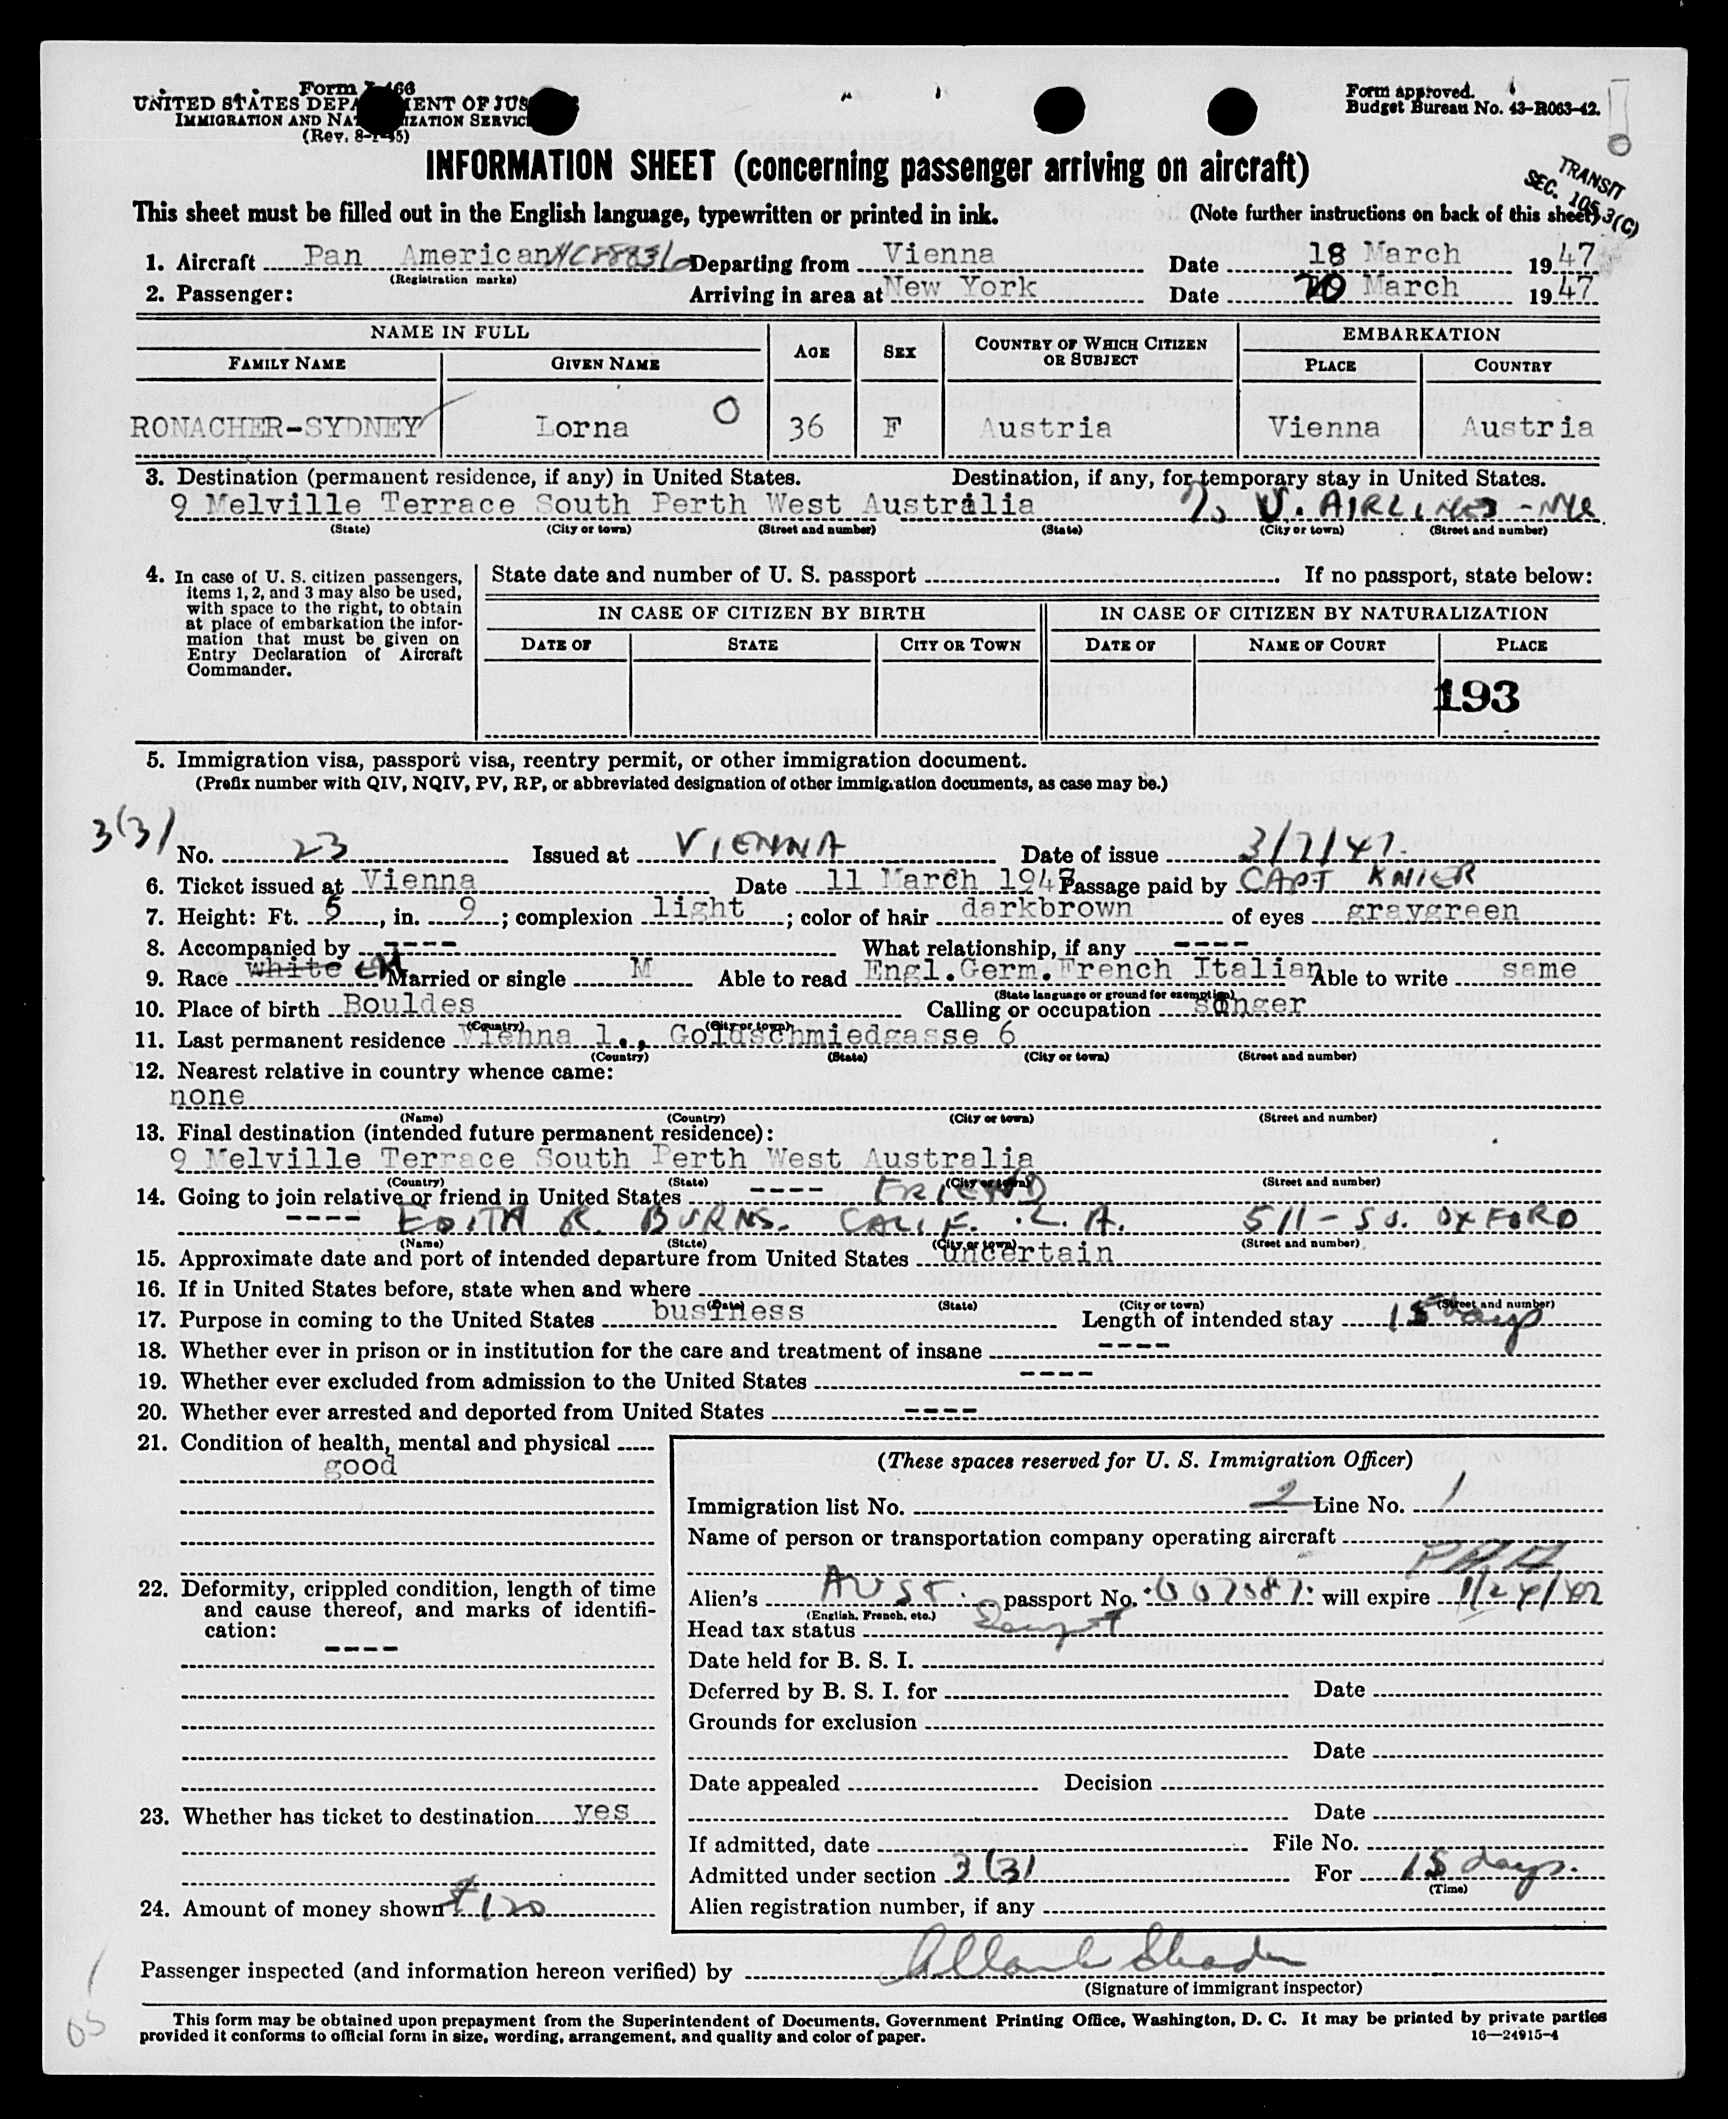 Form I-466
UNITED STATES DEPARTMENT OF JUSTICE
IMMIGRATION AND NATURALIZATION SERVICE
(Rev. 8-1-45)
Form approved.
Budget Bureau No. 43-R063-42.
INFORMATION SHEET (concerning passenger arriving on aircraft)
TRANSIT
SEC. 105.3(C)
This sheet must be filled out in the English language, typewritten or printed in ink. (Note further instructions on back of this sheet)
1. Aircraft Pan American NC88831 Departing from Vienna Date 18 March 1947
(Registration marks)
2. Passenger: Arriving in area at New York Date March 1947
NAME IN FULL AGE SEX COUNTRY OF WHICH CITIZEN OR SUBJECT EMBARKATION
FAMILY NAME GIVEN NAME PLACE COUNTRY
RONACHER-SYDNEY Lorna O 36 F Austria Vienna Austria
3. Destination (permanent residence, if any) in United States. Destination, if any, for temporary stay in United States.
9 Melville Terrace South Perth West Australia % U. AIRLINES - NYC
(State) (City or town) (Street and number) (State) (City or town) (Street and number)
4. In case of U. S. citizen passengers, items 1, 2, and 3 may also be used, with space to the right, to obtain at place of embarkation the information that must be given on Entry Declaration of Aircraft Commander.
State date and number of U. S. passport If no passport, state below:
IN CASE OF CITIZEN BY BIRTH IN CASE OF CITIZEN BY NATURALIZATION
DATE OF STATE CITY OR TOWN DATE OF NAME OF COURT PLACE
193
5. Immigration visa, passport visa, reentry permit, or other immigration document.
(Prefix number with QIV, NQIV, PV, RP, or abbreviated designation of other immigration documents, as case may be.)
3(3)
No. 23 Issued at VIENNA Date of issue 3/7/47.
6. Ticket issued at Vienna Date 11 March 1947 Passage paid by CAPT KNIER
7. Height: Ft. 5, in. 9; complexion light; color of hair darkbrown of eyes graygreen
8. Accompanied by ---- What relationship, if any ----
9. Race white Married or single M Able to read Engl.Germ.French Italian Able to write same
(State language or ground for exemption)
10. Place of birth Bouldes Calling or occupation singer
(Country) (City or town)
11. Last permanent residence Vienna 1., Goldschmiedgasse 6
(Country) (State) (City or town) (Street and number)
12. Nearest relative in country whence came:
none
(Name) (Country) (City or town) (Street and number)
13. Final destination (intended future permanent residence):
9 Melville Terrace South Perth West Australia
(Country) (State) (City or town) (Street and number)
14. Going to join relative or friend in United States ---- FRIEND
---- EDITH R. BURNS. CALIF. L.A. 511 - SO. OXFORD
(Name) (State) (City or town) (Street and number)
15. Approximate date and port of intended departure from United States uncertain
16. If in United States before, state when and where
(Date) (State) (City or town) (Street and number)
17. Purpose in coming to the United States business Length of intended stay 15 days
18. Whether ever in prison or in institution for the care and treatment of insane ----
19. Whether ever excluded from admission to the United States ----
20. Whether ever arrested and deported from United States ----
21. Condition of health, mental and physical
good
(These spaces reserved for U. S. Immigration Officer)
Immigration list No. 2 Line No. 1
Name of person or transportation company operating aircraft
PAA
22. Deformity, crippled condition, length of time and cause thereof, and marks of identification:
----
Alien's AUST. passport No. 007087 will expire 1/24/
(English, French, etc.)
Head tax status Exempt
Date held for B. S. I.
Deferred by B. S. I. for Date
Grounds for exclusion
Date
Date appealed Decision
23. Whether has ticket to destination yes
Date
If admitted, date File No.
Admitted under section 3(3) For 15 days.
(Time)
24. Amount of money shown $120
Alien registration number, if any
Passenger inspected (and information hereon verified) by
(Signature of immigrant inspector)
This form may be obtained upon prepayment from the Superintendent of Documents, Government Printing Office, Washington, D. C. It may be printed by private parties
provided it conforms to official form in size, wording, arrangement, and quality and color of paper. 16—24915-4